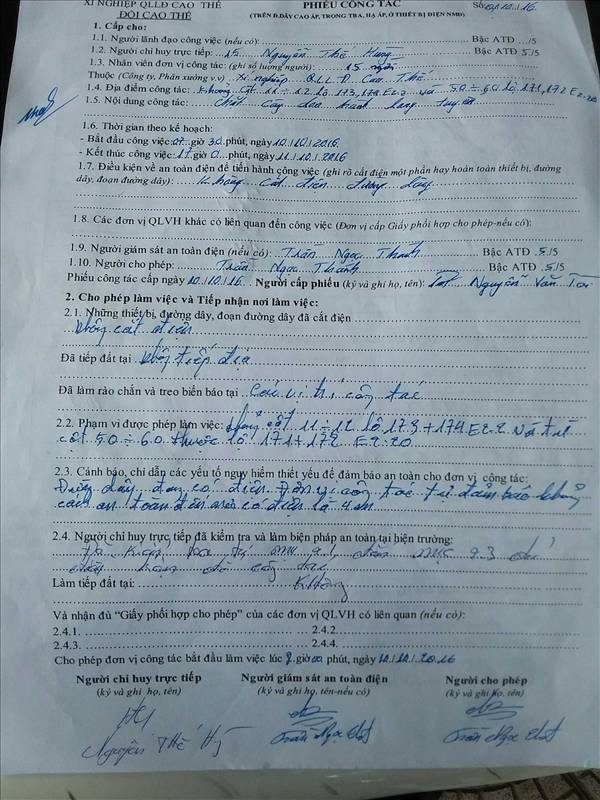 XÍ NGHIỆP QLLĐ CAO THẾ
PHIẾU CÔNG TÁC
ĐỘI CAO THẾ
(TRÊN Đ.DÂY CAO ÁP, TRONG TBA, HẠ ÁP, Ở THIẾT BỊ ĐIỆN NMĐ)
1. Cấp cho:
1.1. Người lãnh đạo công việc (nếu có): Bậc ATĐ .../5
1.2. Người chỉ huy trực tiếp: Nguyễn Thế Bậc ATĐ 5/5
1.3. Nhân viên đơn vị công tác: (ghi số lượng người) 15 người
Thuộc (Công ty, Phân xưởng v.v) Xí nghiệp QLLĐ Cao Thế
1.4. Địa điểm công tác: Khoảng cột 11 ÷ 12 lộ 173, 174 E2.2 và 50 ÷ 60 lộ 171, 172 E2.20
1.5. Nội dung công tác: Chặt cây dọc hành lang tuyến
1.6. Thời gian theo kế hoạch:
- Bắt đầu công việc 07 giờ 30 phút, ngày 10/10/2016
- Kết thúc công việc: 17 giờ 0 phút, ngày 11/10/2016
1.7. Điều kiện về an toàn điện để tiến hành công việc (ghi rõ cắt điện một phần hay hoàn toàn thiết bị, đường
dây, đoạn đường dây): Không cắt điện đường dây
1.8. Các đơn vị QLVH khác có liên quan đến công việc (Đơn vị cấp Giấy phối hợp cho phép-nếu có):
1.9. Người giám sát an toàn điện (nếu có): Trần Ngọc Bậc ATĐ 5/5
1.10. Người cho phép: Trần Ngọc Bậc ATĐ 5/5
Phiếu công tác cấp ngày 10/10/16. Người cấp phiếu (ký và ghi họ, tên): Nguyễn Văn
2. Cho phép làm việc và Tiếp nhận nơi làm việc:
2.1. Những thiết bị, đường dây, đoạn đường dây đã cắt điện
không cắt điện
Đã tiếp đất tại không tiếp địa
Đã làm rào chắn và treo biển báo tại Các vị trí công tác
2.2. Phạm vi được phép làm việc: khoảng cột 11 ÷ 12 lộ 173 + 174 E2.2 Và từ
cột 50 ÷ 60 thuộc lộ 171 + 172 E2.20
2.3. Cảnh báo, chỉ dẫn các yếu tố nguy hiểm thiết yếu để đảm bảo an toàn cho đơn vị công tác:
Đường dây đang có điện Đơn vị công tác tự đảm bảo khoảng
cách an toàn điện có điện là 4m
2.4. Người chỉ huy trực tiếp đã kiểm tra và làm biện pháp an toàn tại hiện trường:
Làm tiếp đất tại: Không
Và nhận đủ “Giấy phối hợp cho phép” của các đơn vị QLVH có liên quan (nếu có):
2.4.1. 2.4.2.
2.4.3. 2.4.4.
Cho phép đơn vị công tác bắt đầu làm việc lúc giờ 00 phút, ngày 10/10/2016
Người chỉ huy trực tiếp Người giám sát an toàn điện Người cho phép
(ký và ghi họ, tên) (ký và ghi họ, tên-nếu có) (ký và ghi họ, tên)
Nguyễn Thế Trần Ngọc Trần Ngọc